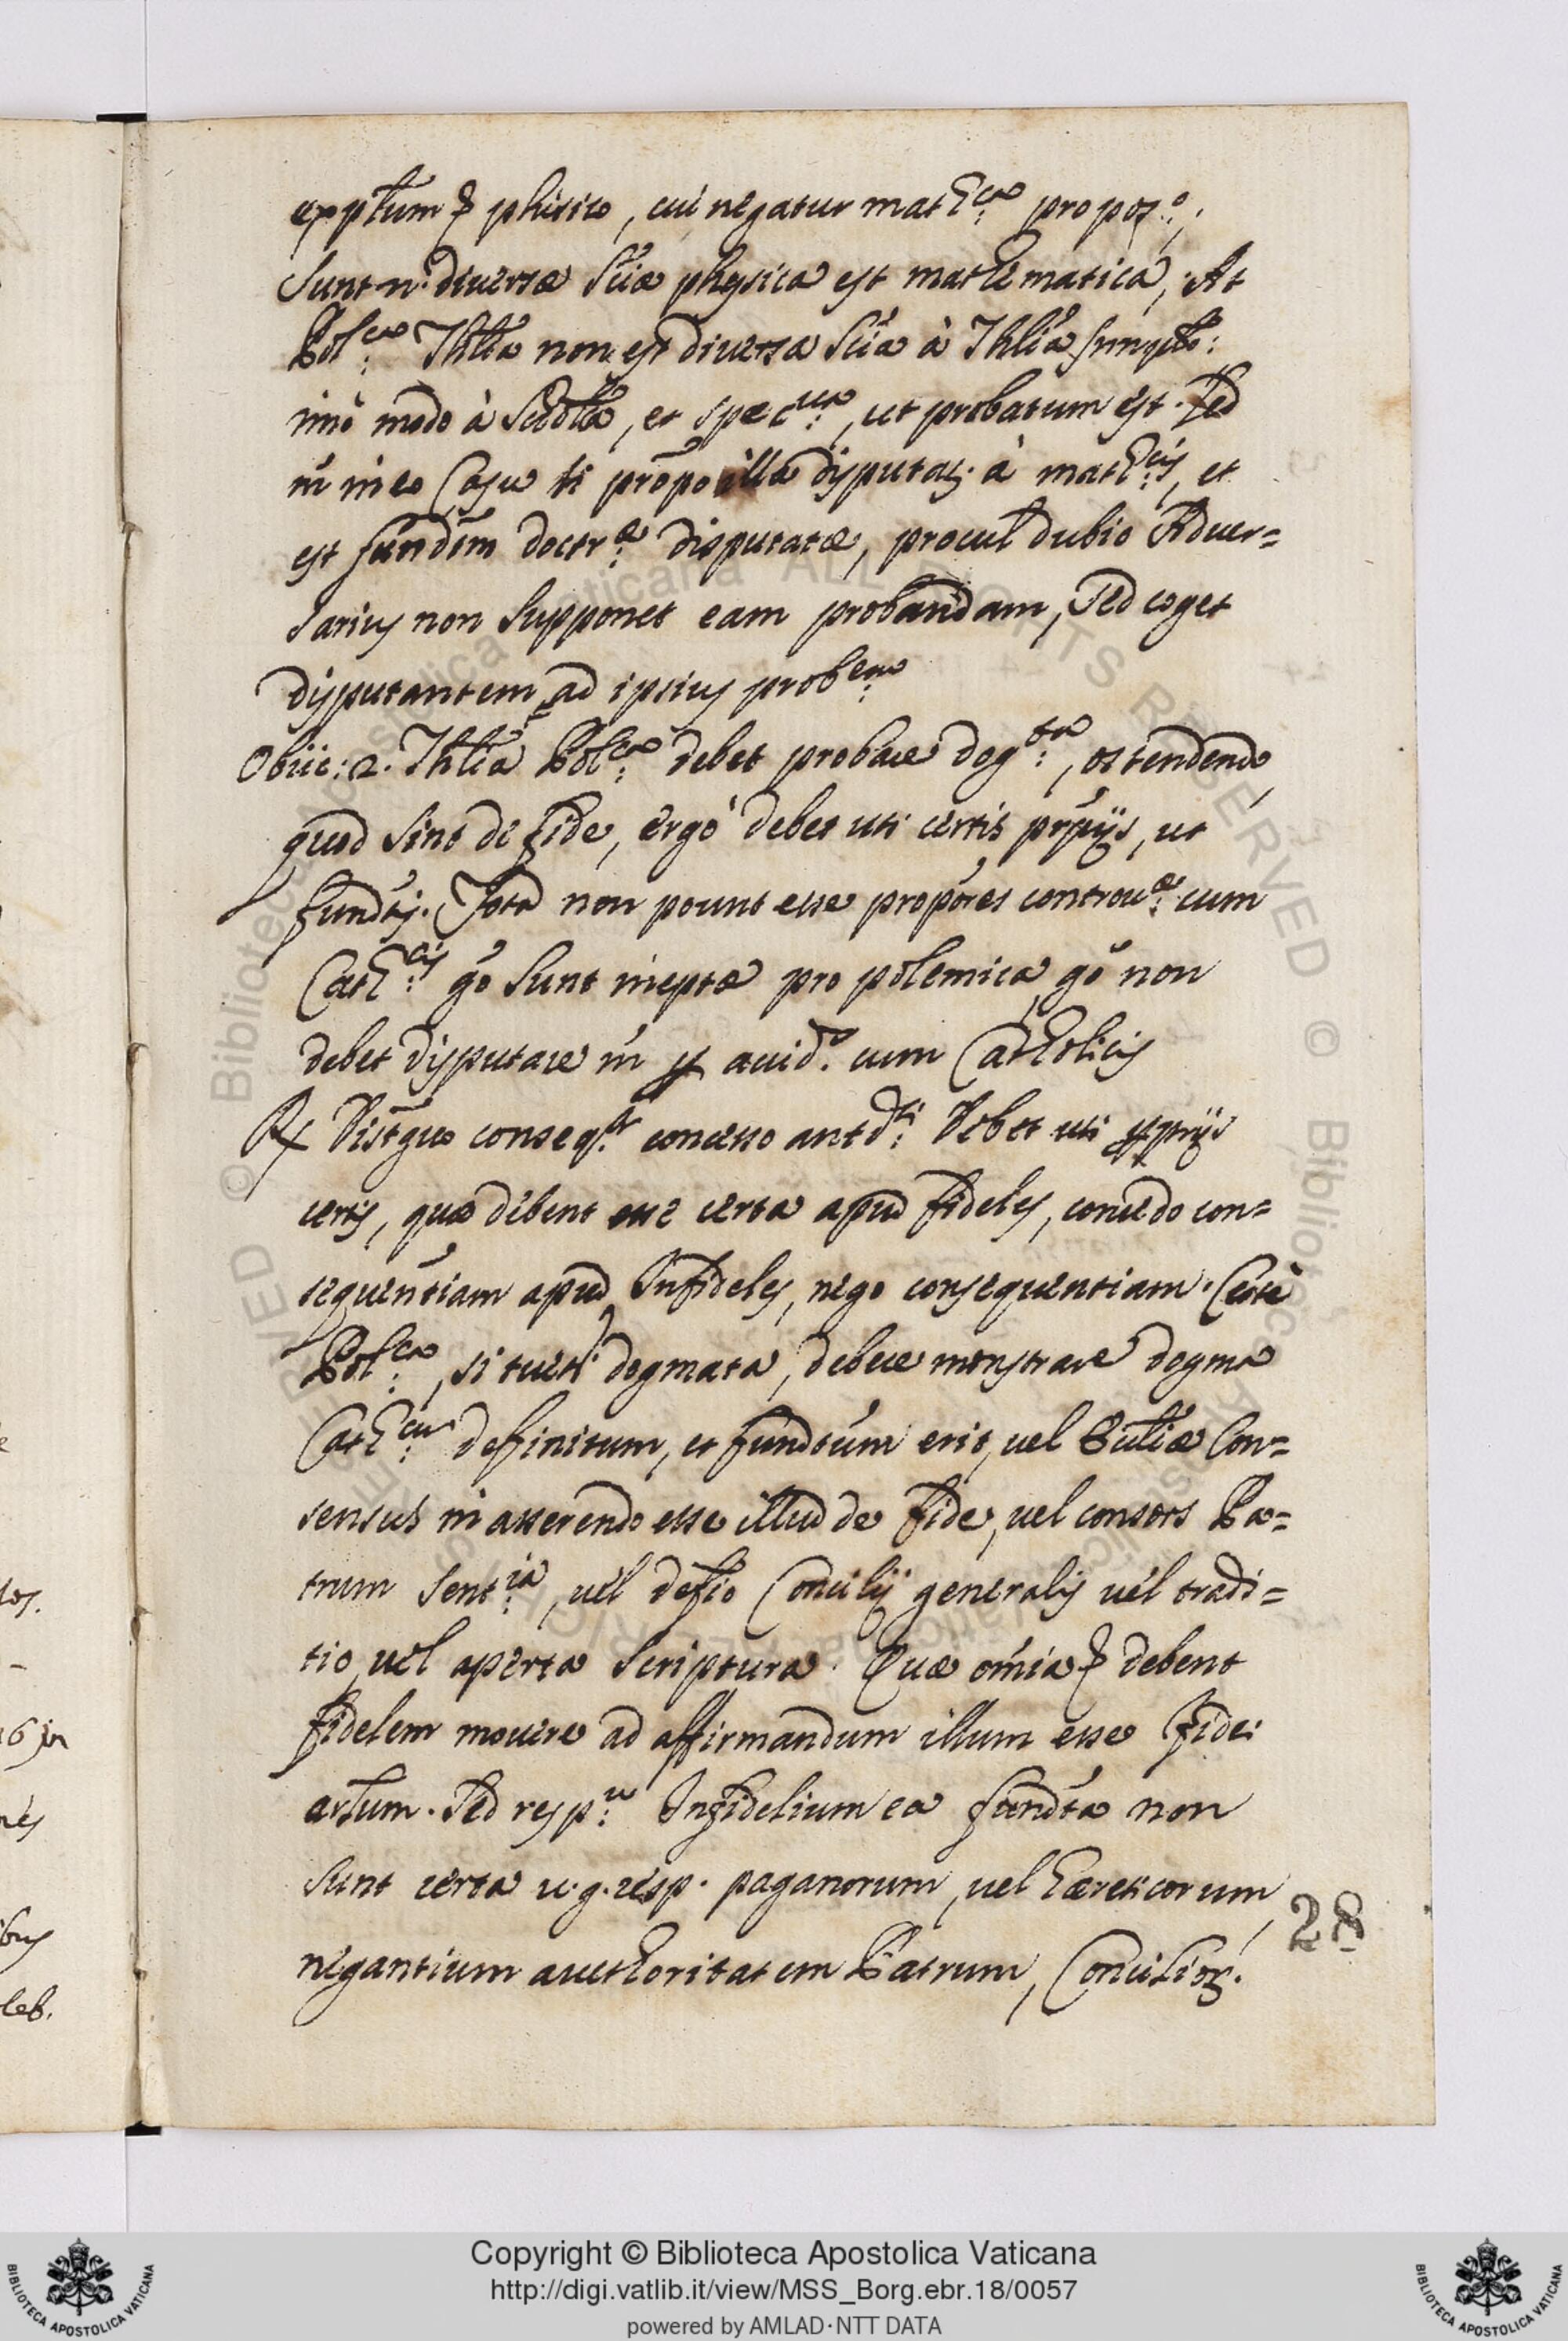 exptum ꝑ phisico, cui negatur mathca: propoſo:,
Sunt n. diuersæ Sciæ physica est mathematica, At
Polca: Thlia non est diuersa Scia à Thlia
imò modo à Schola, et specua:, ut probatum est. Sed
in eo Casu si propo illa disputaz. à mathcis:, et
est fundm doctræ: disputatæ, procul dubio Aduer=
sarius non supponet eam probandam, sed coget
disputantem ad ipsius probem:
Obiic: 2. Thlia Polca: debet probare dogta:, ostendendo,
quod sint de fide, ergo debet uti certis prpijs, ut
fundtis. Tota non pount esse propores controuæ: cum
Cathcis: gò sunt ineptæ pro polemica, gò non
debet disputare in auid. cum Catholicis
R Distguo conseqtr: concesso antdti: Debet uti prijs
certis, quæ debent esse certa apud fideles, concedo con=
sequentiam apud Infideles, nego consequentiam. Certè
Polca:, si tueti dogmata, debere monstrare dogma
Cathcum: definitum, et fundtum erit, uel Ecclie Con=
sensus in asserendo esse illud de fide, uel consors Pa=
trum sentia:, uel defio Concilij generalis uel tradi=
tio, uel aperta Scriptura. Quæ omia ꝑ debent
fidelem mouere ad affirmandum illum esse fidei
artum. Sed respu: Infidelium ea fundta non
sunt certa u.g. resp. paganorum, uel hæreticorum,
negantium aucthoritatem Patrum, Concilioꝝ.
28
Copyright © Biblioteca Apostolica Vaticana
http://digi.vatlib.it/view/MSS_Borg.ebr.18/0057
powered by AMLAD·NTT DATA